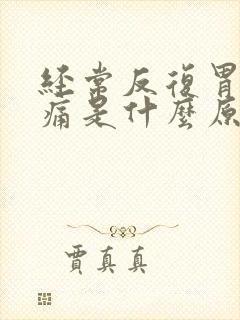 經常反復胃
痛是什麼原
賈真真